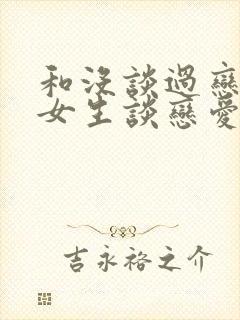 和沒談過戀
女生談戀愛
吉永裕之介